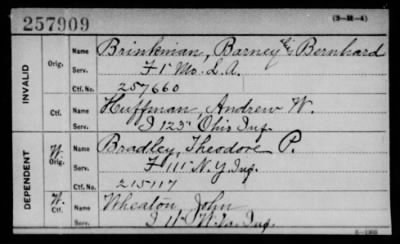 257909 (3-M-4)
INVALID Orig. Name Brinkman, Barney Bernhard
Serv. F 1" Mo. L.A.
Ctf. No. 257660
Ctf. Name Huffman, Andrew W.
Serv. I 123" Ohio Inf.
DEPENDENT W. Orig. Name Bradley, Theodore P.
Serv. F 111" N.Y. Inf.
Ctf. No. 215117
W. Ctf. Name Wheaton, John
Serv. I 11" W.Va. Inf.